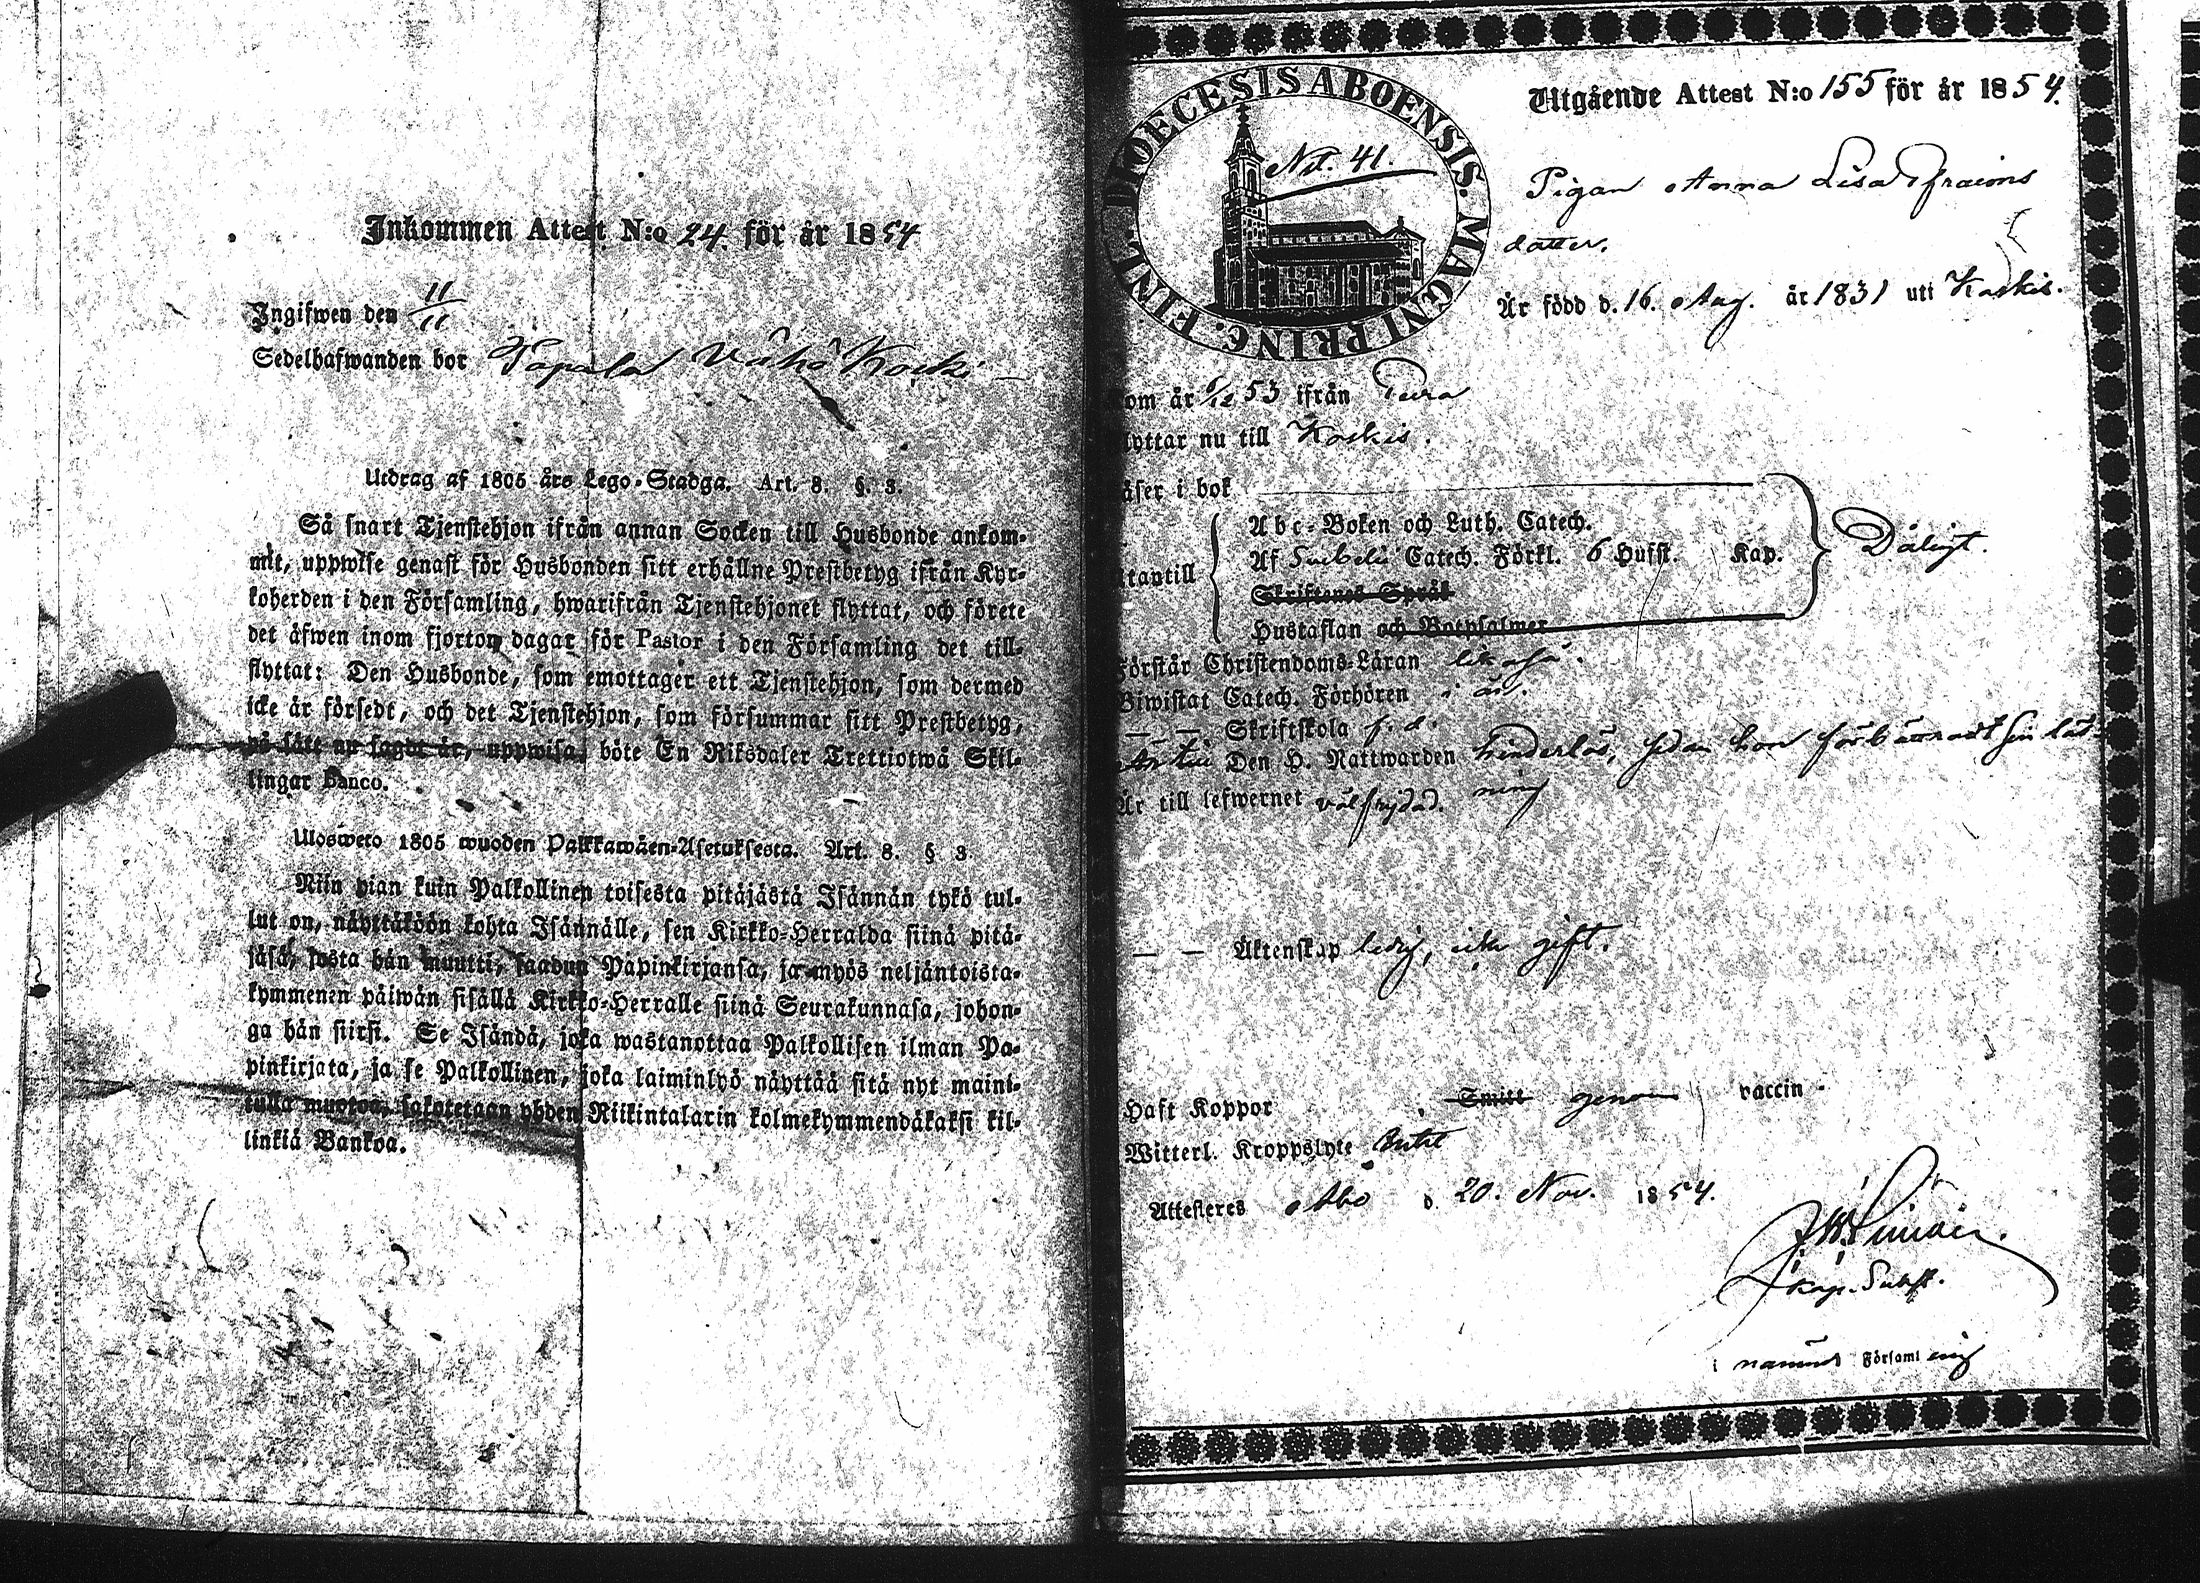 Inkommen Attest N:o 24. för år 1854
Ingifwen den 11/11
Sedelhafwanden bor Tapala Vähä Koski
Utdrag af 1805 års Lego-Stadga. Art. 8. §. 3.
Så snart Tjenstehjon ifrån annan Socken till Husbonde ankom-
mit, uppwise genast för Husbonden sitt erhållne Prestbetyg ifrån Kyr-
koherden i den Församling, hwarifrån Tjenstehjonet flyttat, och förete
det äfwen inom fjorton dagar för Pastor i den Församling det till-
flyttat: Den Husbonde, som emottager ett Tjenstehjon, som dermed
icke är försedt, och det Tjenstehjon, som försummar sitt Prestbetyg,
på sätt nu sagdt är, uppwisa, böte En Riksdaler Trettiotwå Skil-
lingar Banco.
Ulosweto 1805 wuoden Palkkawäen-Asetuksesta. Art. 8. § 3.
Niin pian kuin Palkollinen toisesta pitäjästä Isännän tykö tul-
lut on, näyttäköön kohta Isännälle, sen Kirkko-Herralda siinä pitä-
jäsä, josta hän muutti, saadun Papinkirjansa, ja myös neljäntoista-
kymmenen päiwän sisällä Kirkko-Herralle siinä Seurakunnasa, johon-
ga hän siirsi. Se Isändä, joka wastanottaa Palkollisen ilman Pa-
pinkirjata, ja se Palkollinen, joka laiminlyö näyttää sitä nyt maini-
tulla muotoa, sakotetaan yhden Riikintalarin kolmekymmendäkaksi kil-
linkiä Bankoa.
DIOECESIS ABOENSIS. MAGNI PRINC. FINL.
Nɪt. 41.
Utgående Attest N:o 155 för år 1854.
Pigan Anna Lisa Efraims
dotter.
Är född d. 16. Aug. år 1831 uti Koskis.
om år 6/12 53 ifrån
lyttar nu till Koskis.
äser i bok
Abc-Boken och Luth. Catech.
Af Svebelii Catech. Förkl. 6 Hufst. Kap. Dåligt.
tantill
Skriftenes Språk
Hustaflan och Botpsalmer
Förstår Christendoms-Läran likaså.
Biwistat Catech. Förhören i år.
— — Skriftskola f. d.
Är till Den H. Nattwarden hinderlös, sedan hon förbättrat sin läs-
ning
Är till lefwernet välfrejdad.
— — Äktenskap ledig, icke gift.
Haft Koppor Smitt genom vaccin.
Witterl. Kroppslyte
Attesteres Åbo d. 20. Nov. 1854.
Kap. Subst.
i nämnde Församling